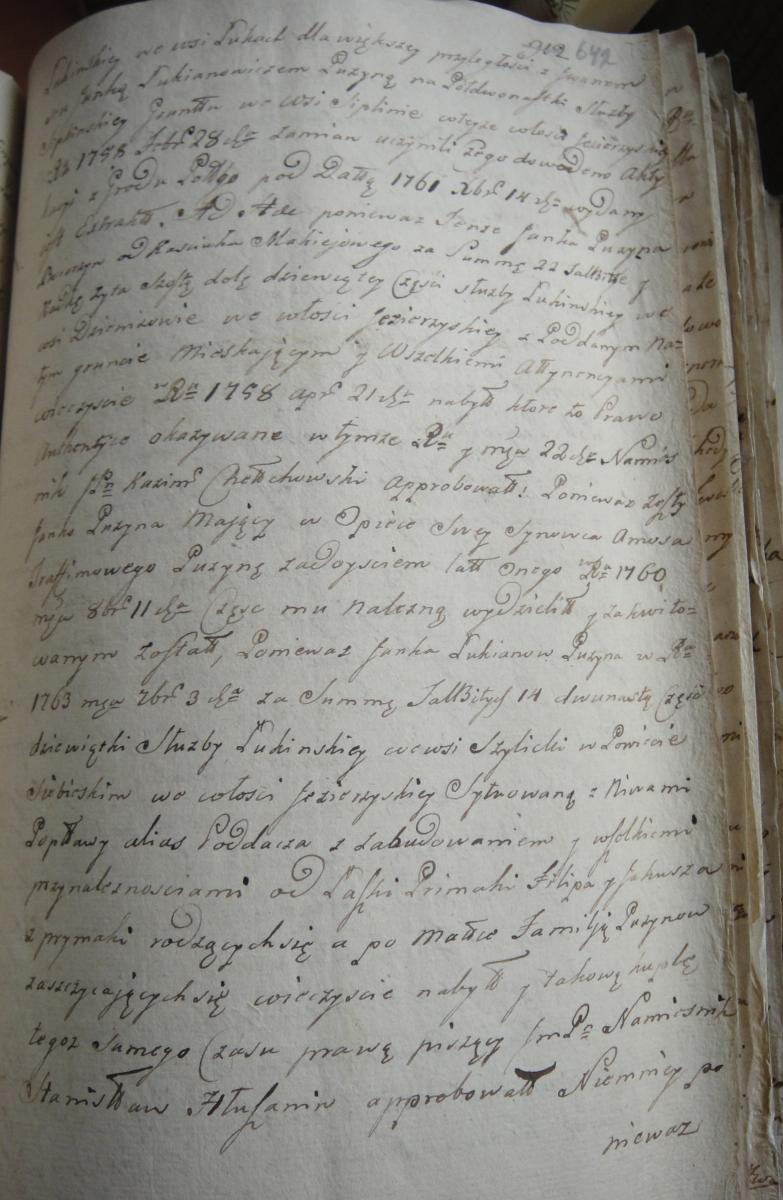 912 642
Łukinskiey we wsi Łukach dla większey przyległości z Iwanem
Janką Łukianowiczem Puzyną na Półdwonastki Służby
Siplinskiey Grunttu we wsi Siplinie wteyze włości Jezierzyskiey
Ru 1758 Febr 28 dnia zamian uczynili Zego dowodzono Akty
kacyi z Grodu Połłgo pod Dattą 1761 Xbr 14 dnia wydany
iest Extraktt. Ad Ade poniewaz Tenze Janka Puzyna
od Kasciuka Makiejowego za Summę 22 TallBitte y
Kadkę zyta szostą dolę dziewiątey Części służby Łukinskiey we
wsi Dziemizowie we włości Jezierzyskiey z Poddanym na=
tym gruncie Mieskającym y Wszelkiemi Attynencyami
wieczyscie w Ru 1758 apr 21 dnia nabył ktore to Prawo
Authentyce okazywane w tymze Ru y mca 22 dnia Namies
nik JPn Kazimr Chełchowski approbowatt! Poniewaz zesły
Janko Puzyna Mający w Opiece Swey Synowca Amosa
Traffimowego Puzynę zadoysciem latt onego w Ru 1760
mca 8br 11 dnia Częsc mu nalezną wydzielił y zakwito=
wanym zosłatt, Poniewaz Janka Łukianow Puzyna w Ru
1763 mca 7br 3 dnia za Summę TallBitych 14 dwunastą Częsć
dziewiątki Służby Łukinskiey we wsi Szylicki w Powiecie
Siebieskim we włości Jezierzyskiey Sytuowaną z Niwami
Popławy alias Poddacza z zabudowaniem y wszelkiemi
przynaleznosciami od Łaski Primaki Filipa y Jakusza
z prymaki rodzących się a po Matce Familją Puzynow
zaszczycających się wieczyscie nabył y takową kuplę
tegoz samego Czasu prawę piszący JmPn Namiesnik
Stanisław Hłusanin approbowatt Niemniey po
niewaz